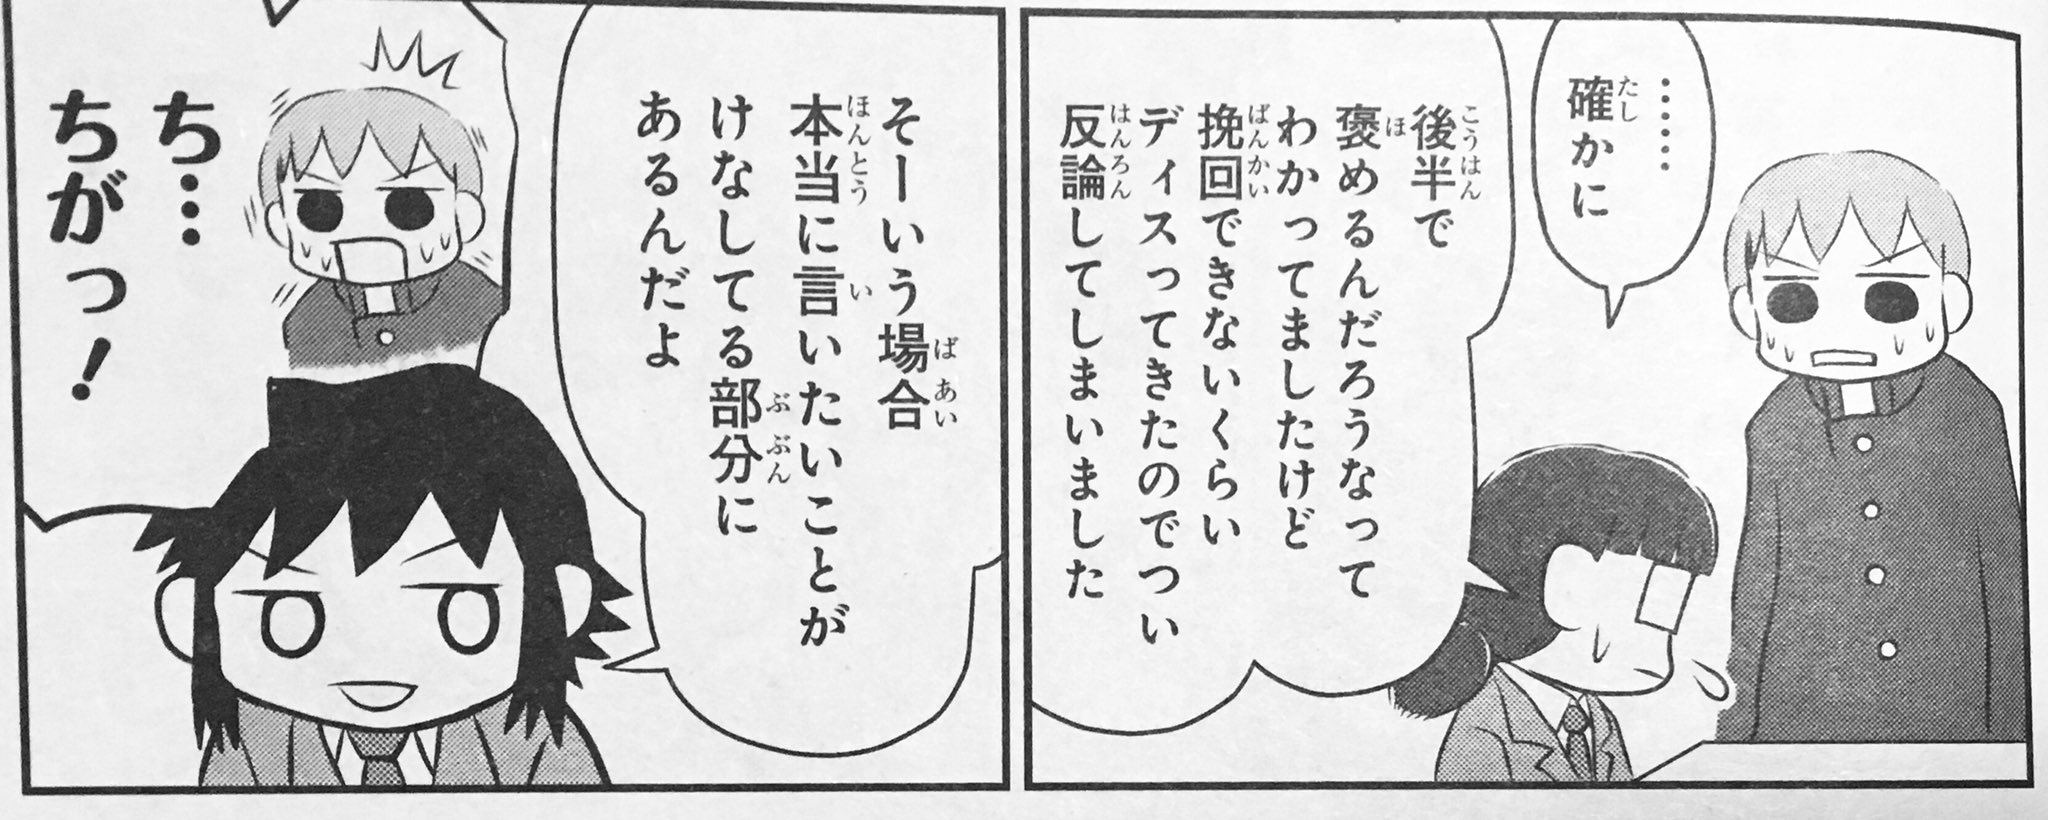 ……
確かに
後半で
褒めるんだろうなって
わかってましたけど
挽回できないくらい
ディスってきたのでつい
反論してしまいました
そーいう場合
本当に言いたいことが
けなしてる部分に
あるんだよ
ち…
ちがっ！